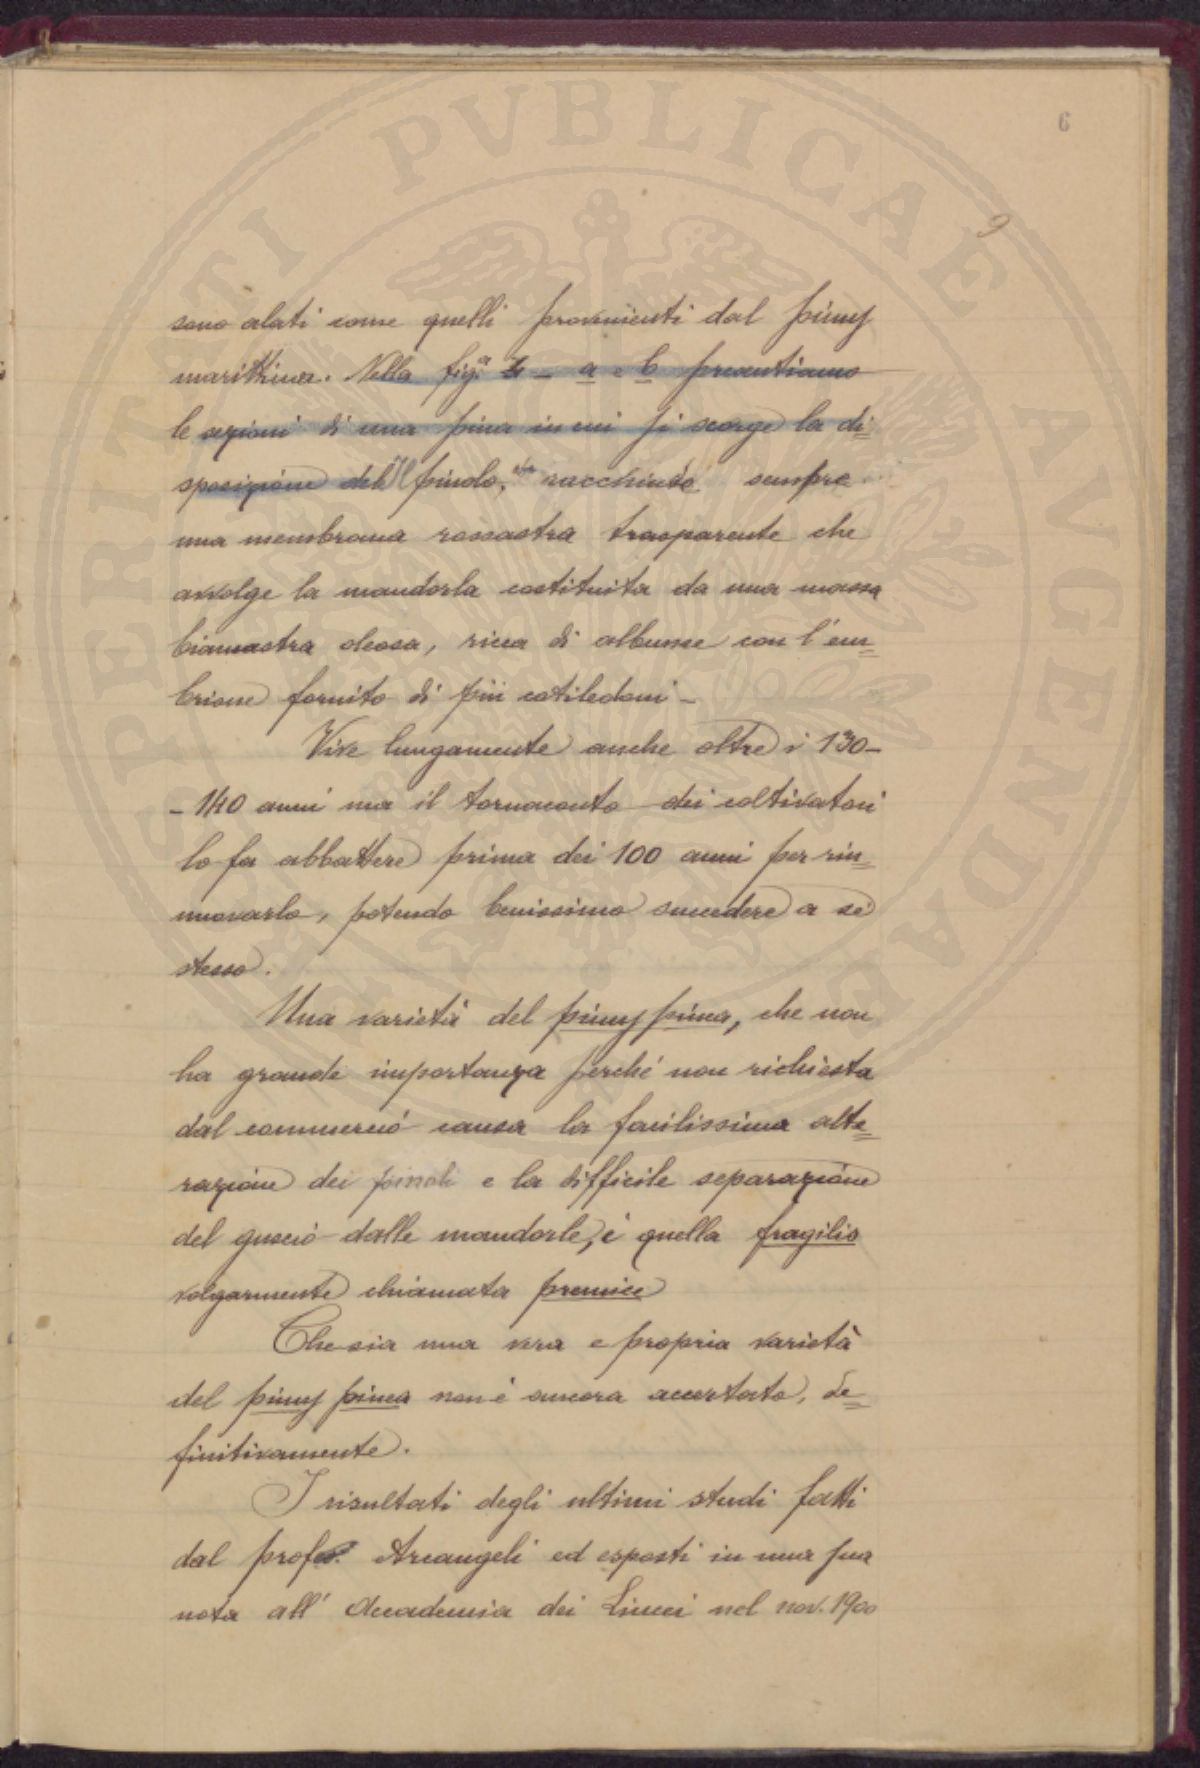 6
9
sono alati come quelli provenienti dal pinus
marittima. Nella fig.a 4 - a e b presentiamo
le sezioni di una pina in cui si scorge la di=
sposizione del Il pinolo, racchiude sempre
una membrana rossastra trasparente che
avvolge la mandorla costituita da una massa
biancastra oleosa, ricca di albume con l'em=
brione fornito di più cotiledoni -
Vive lungamente anche oltre i 130 -
- 140 anni ma il tornaconto dei coltivatori
lo fa abbattere prima dei 100 anni per rin=
nuovarlo, potendo benissimo succedere a sè
stesso.
Una varietà del pinus pinea, che non
ha grande importanza perché non richiesta
dal commercio causa la facilissima alte=
razione dei pinoli e la difficile separazione
del guscio dalle mandorle, è quella fragilis
volgarmente chiamata premice
Che sia una vera e propria varietà
del pinus pinea non è ancora accertato, de=
finitivamente.
I risultati degli ultimi studi fatti
dal prof. Arcangeli ed esposti in una sua
nota all' Accademia dei Lincei nel nov. 1900
PERITATI PVBLICAE AVGENDAE